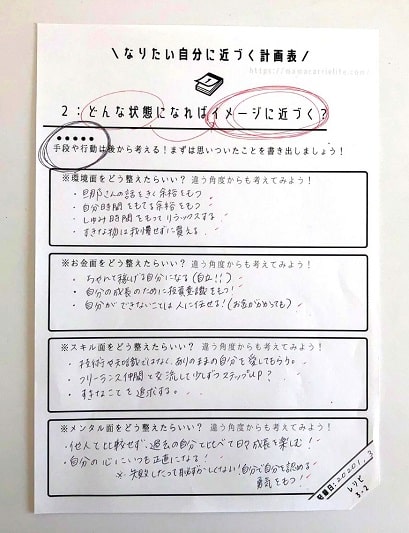 \ なりたい自分に近づく計画表 /
https://mamacatriolife.com/
2：どんな状態になればイメージに近づく？
手段や行動は後から考える！まずは思いついたことを書き出しましょう！
※環境面をどう整えたらいい？ 違う角度からも考えてみよう！
・旦那さんの話をきく余裕をもつ
・自分時間をもてる余裕をもつ
・しゅみ時間をもってリラックスする
・すきな物は我慢せずに買える
※お金面をどう整えたらいい？ 違う角度からも考えてみよう！
・ちゃんと稼げる自分になる(自立!!)
・自分の成長のために投資意識をもつ!
・自分ができないことは人に任せる!(お金がかかっても)
※スキル面をどう整えたらいい？ 違う角度からも考えてみよう！
・技術や知識ではなく、ありのままの自分を愛してもらう。
・フリーランス仲間と交流して少しずつステップUP?
・すきなことを追求する。
※メンタル面をどう整えたらいい？ 違う角度からも考えてみよう！
・他人と比較せず、過去の自分と比べて日々成長を楽しむ!
・自分の心にいつも正直になる!
※失敗したって恥ずかしくない!自分で自分を認める
勇気をもつ!
記入日：
レリピ
3-2